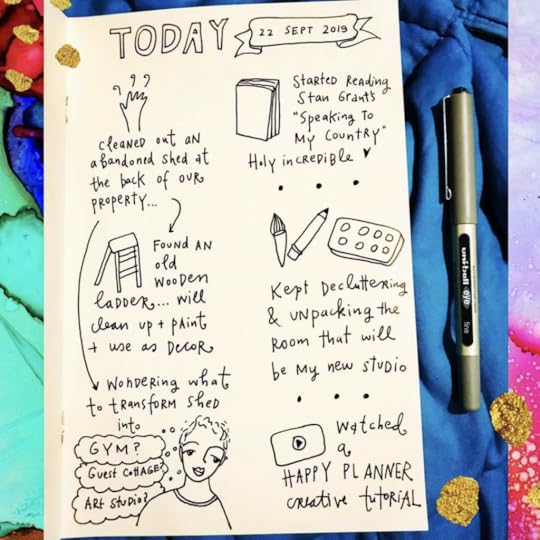 TODAY
22 SEPT 2019
CLEANED OUT AN
abandoned shed at
the back of our
property...
FOUND AN
old
wooden
ladder... will
clean up + paint
+ use as decor
Wondering what
to transform shed
into
GYM?
Guest Cottage?
Art Studio?
Started Reading
Stan Grant's
"Speaking To
My Country"
Holy incredible
Kept Decluttering
& unpacking the
room that will
be my new studio
Watched
a
HAPPY PLANNER
creative tutorial
uni-ball eye
fine